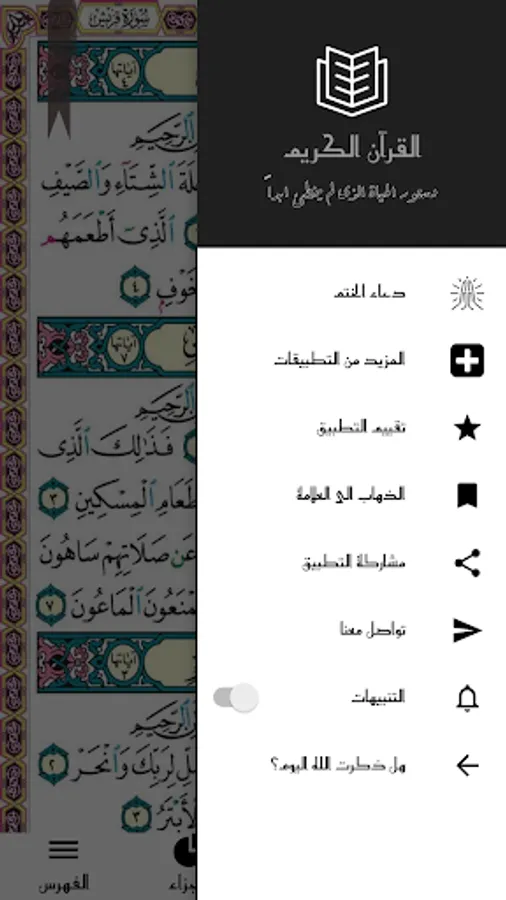 سُورَةُ قُرَيْشٍ
القرآن الكريم
دستور الحياة الذي لم ابداً
دعاء الختم
المزيد من التطبيقات
تقييم التطبيق
الذهاب الى العلامة
مشاركة التطبيق
تواصل معنا
التنبيهات
هل ذكرت الله اليوم؟
آياتها ٤
الرَّحِيمِ
الشِّتَاءِ وَالصَّيْفِ
الَّذِي أَطْعَمَهُم
٤
آياتها ٧
الرَّحِيمِ
فَذَٰلِكَ الَّذِي
طَعَامِ الْمِسْكِينِ ٣
عَن صَلَاتِهِمْ سَاهُونَ
الْمَاعُونَ ٧
آياتها ٣
الرَّحِيمِ
لِرَبِّكَ وَانْحَرْ ٢
الْأَبْتَرُ ٣
الفهرس